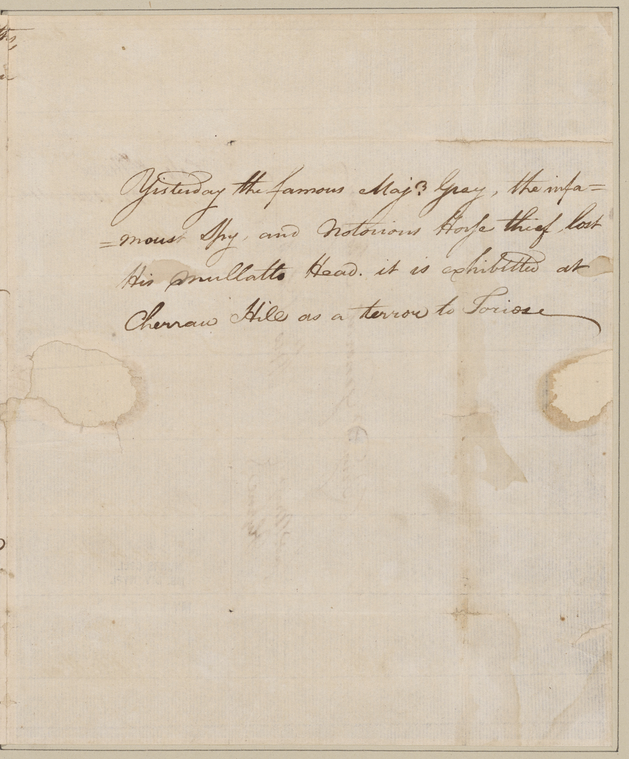 Yisterday the famous Majr Gray, the infa=
=moust Spy, and Notorious Horse thief, lost
His mullatto Head. it is exhibitted at
Cherraw Hill as a terror to Toriose